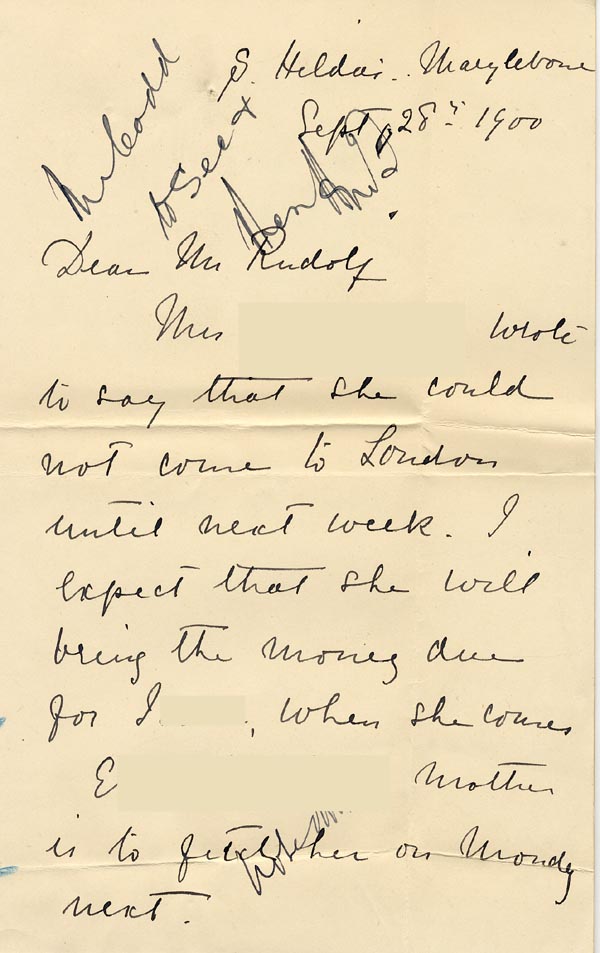 S. Hilda's. Marylebone
Sept 28th 1900
Mr Codd
to See &
Dear Mr Rudolf
Mrs wrote
to say that she could
not come to London
until next week. I
expect that she will
bring the money due
for I , when she comes
E mother
is to fetch her on Monday
next.